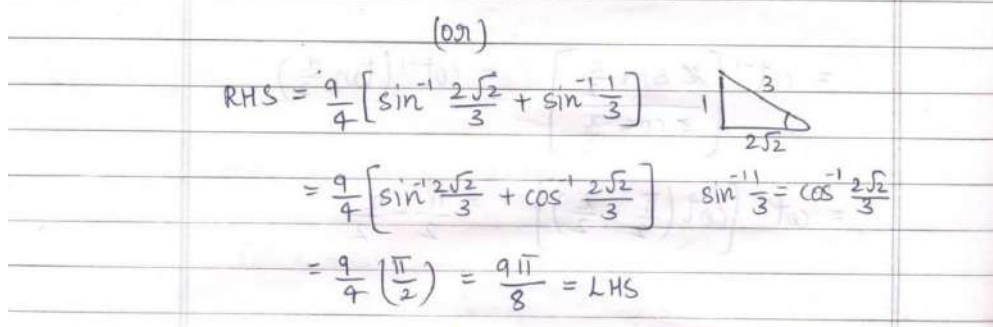 (or)
RHS = 9/4 [sin⁻¹ 2√2/3 + sin⁻¹ 1/3] 1 3 2√2
= 9/4 [sin⁻¹ 2√2/3 + cos⁻¹ 2√2/3] sin⁻¹ 1/3 = cos⁻¹ 2√2/3
= 9/4 (π/2) = 9π/8 = LHS